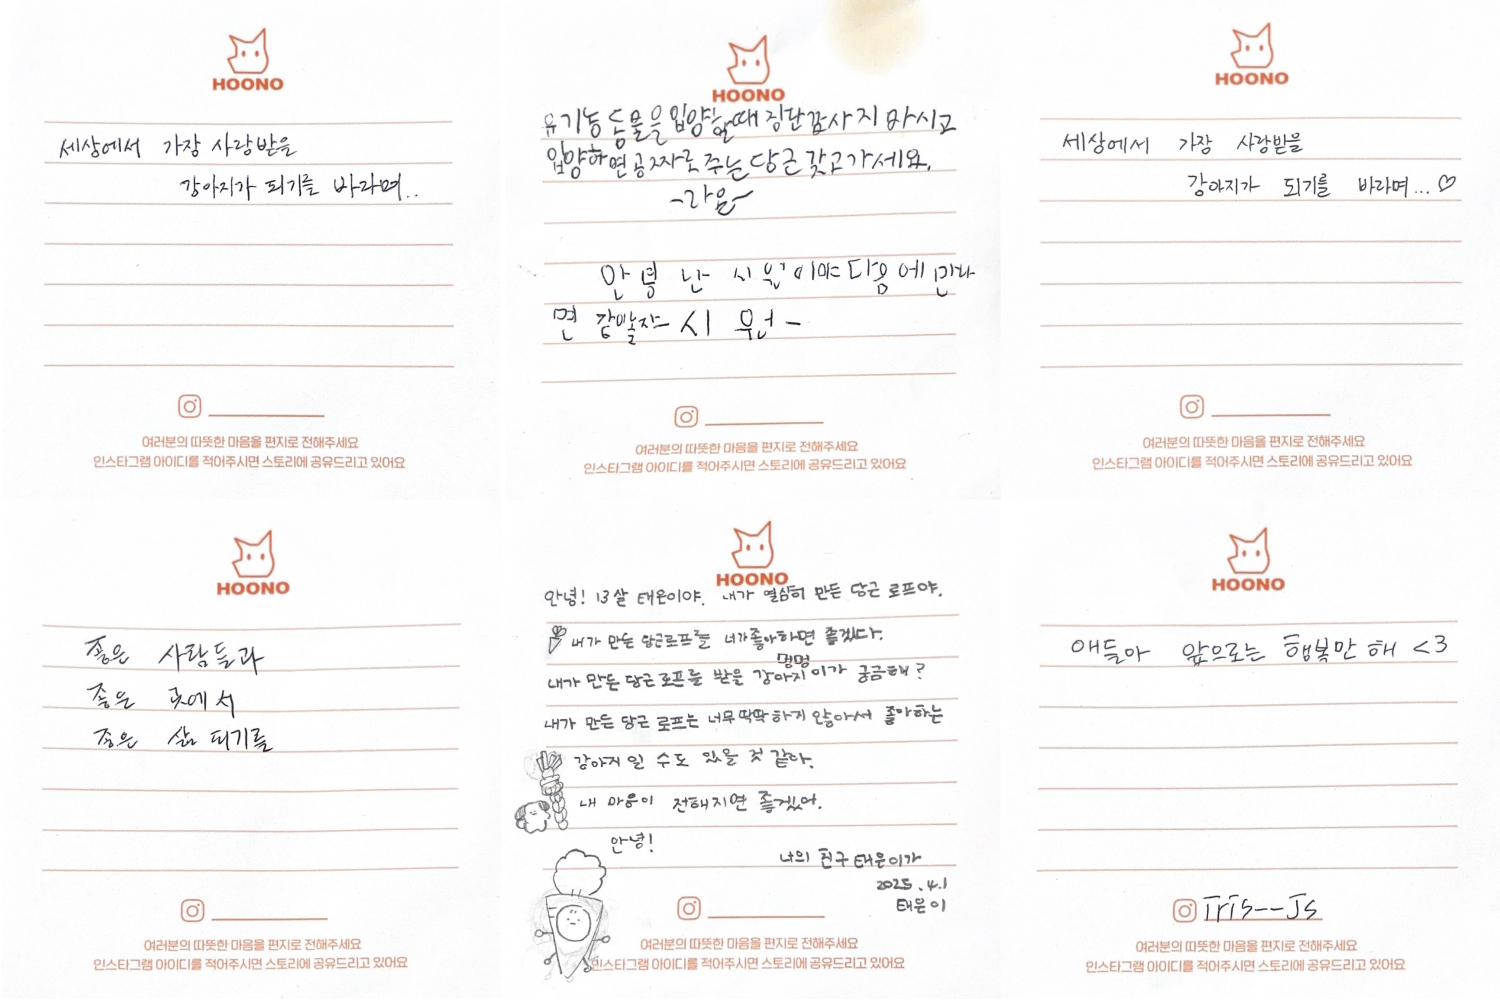 HOONO
세상에서 가장 사랑받을
강아지가 되기를 바라며..
여러분의 따뜻한 마음을 편지로 전해주세요
인스타그램 아이디를 적어주시면 스토리에 공유드리고 있어요
HOONO
유기동동물을 입양할때 집단감사지 마시고
입양하면 공짜로 주는 당근 갖고가세요.
-라음-
안녕 난 시원이야 다음에 만나
면 같이놀자 시원-
여러분의 따뜻한 마음을 편지로 전해주세요
인스타그램 아이디를 적어주시면 스토리에 공유드리고 있어요
HOONO
세상에서 가장 사랑받을
강아지가 되기를 바라며...♡
여러분의 따뜻한 마음을 편지로 전해주세요
인스타그램 아이디를 적어주시면 스토리에 공유드리고 있어요
HOONO
좋은 사람들과
좋은 곳에서
좋은 삶 되기를
여러분의 따뜻한 마음을 편지로 전해주세요
인스타그램 아이디를 적어주시면 스토리에 공유드리고 있어요
HOONO
안녕! 13살 태은이야. 내가 열심히 만든 당근 로프야.
내가 만든 당근로프를 너가좋아하면 좋겠다.
멍멍
내가 만든 당근로프를 받을 강아지 이가 궁금해?
내가 만든 당근 로프는 너무 딱딱하지 않아서 좋아하는
강아지 일 수도 있을 것 같다.
내 마음이 전해지면 좋겠어.
안녕!
너의 친구 태은이가
2025.4.1
태은이
여러분의 따뜻한 마음을 편지로 전해주세요
인스타그램 아이디를 적어주시면 스토리에 공유드리고 있어요
HOONO
애들아 앞으로는 행복만 해 <3
Iris--Js
여러분의 따뜻한 마음을 편지로 전해주세요
인스타그램 아이디를 적어주시면 스토리에 공유드리고 있어요